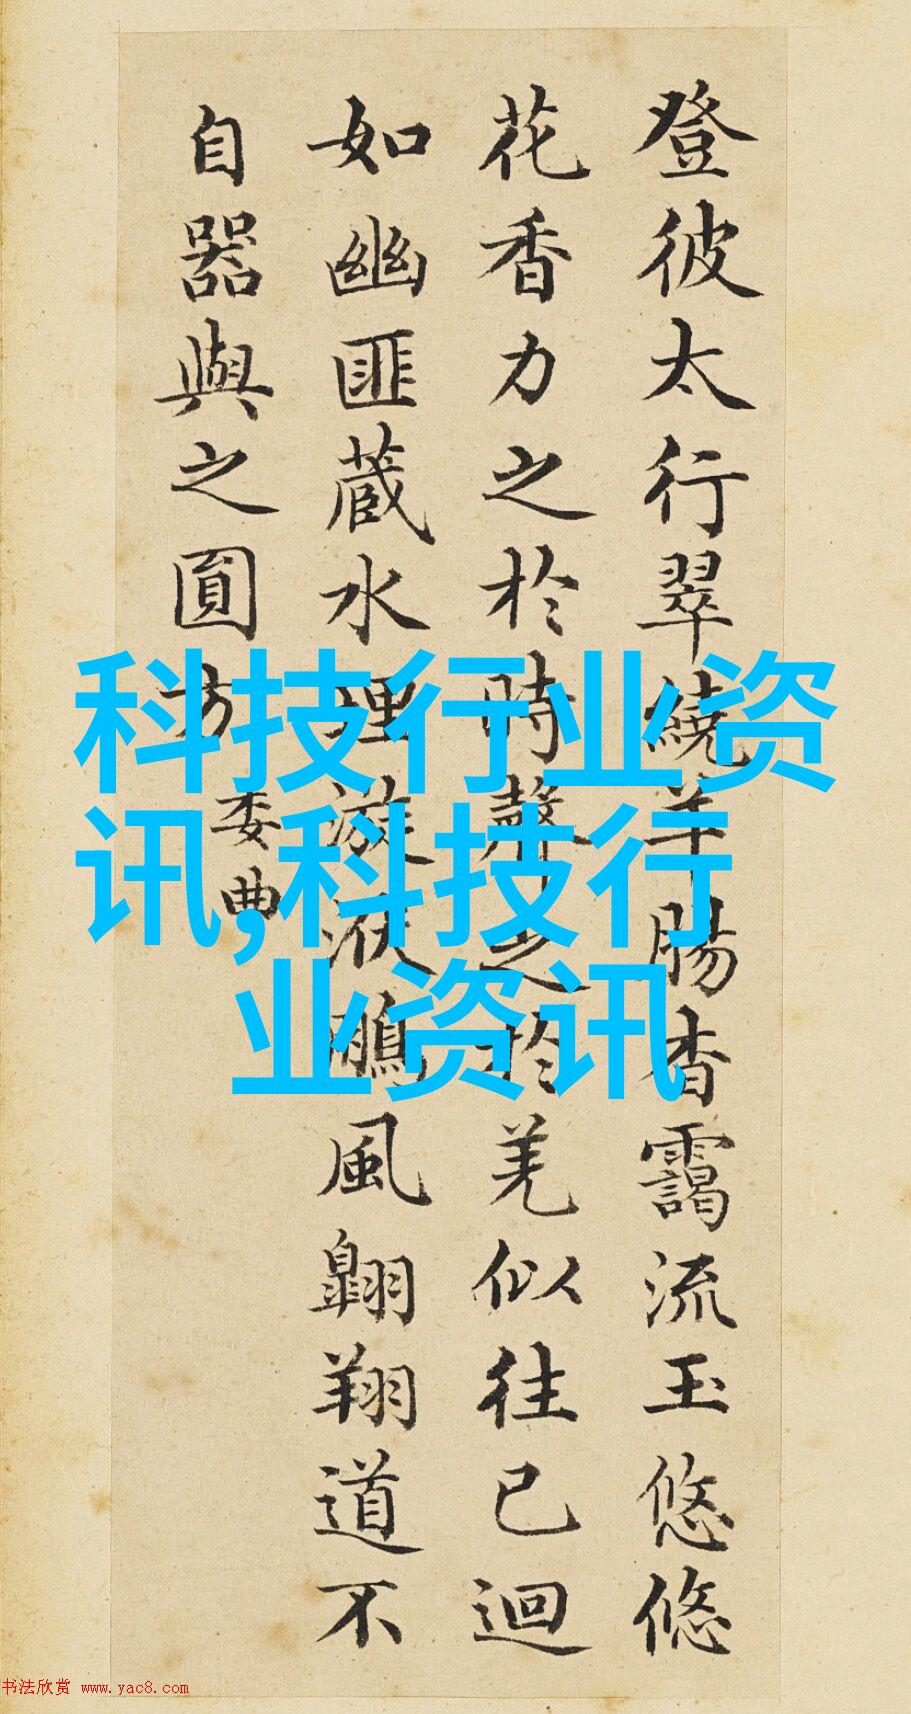 登彼太行翠繞羊腸杳靄流玉悠悠
花香力之於時聲之於羌似往已迴
如幽匪藏水理漩洑鵬風翺翔道不
自器與之圓方 委曲
科技行业资
讯,科技行
业资讯
书法欣赏 www.yac8.com